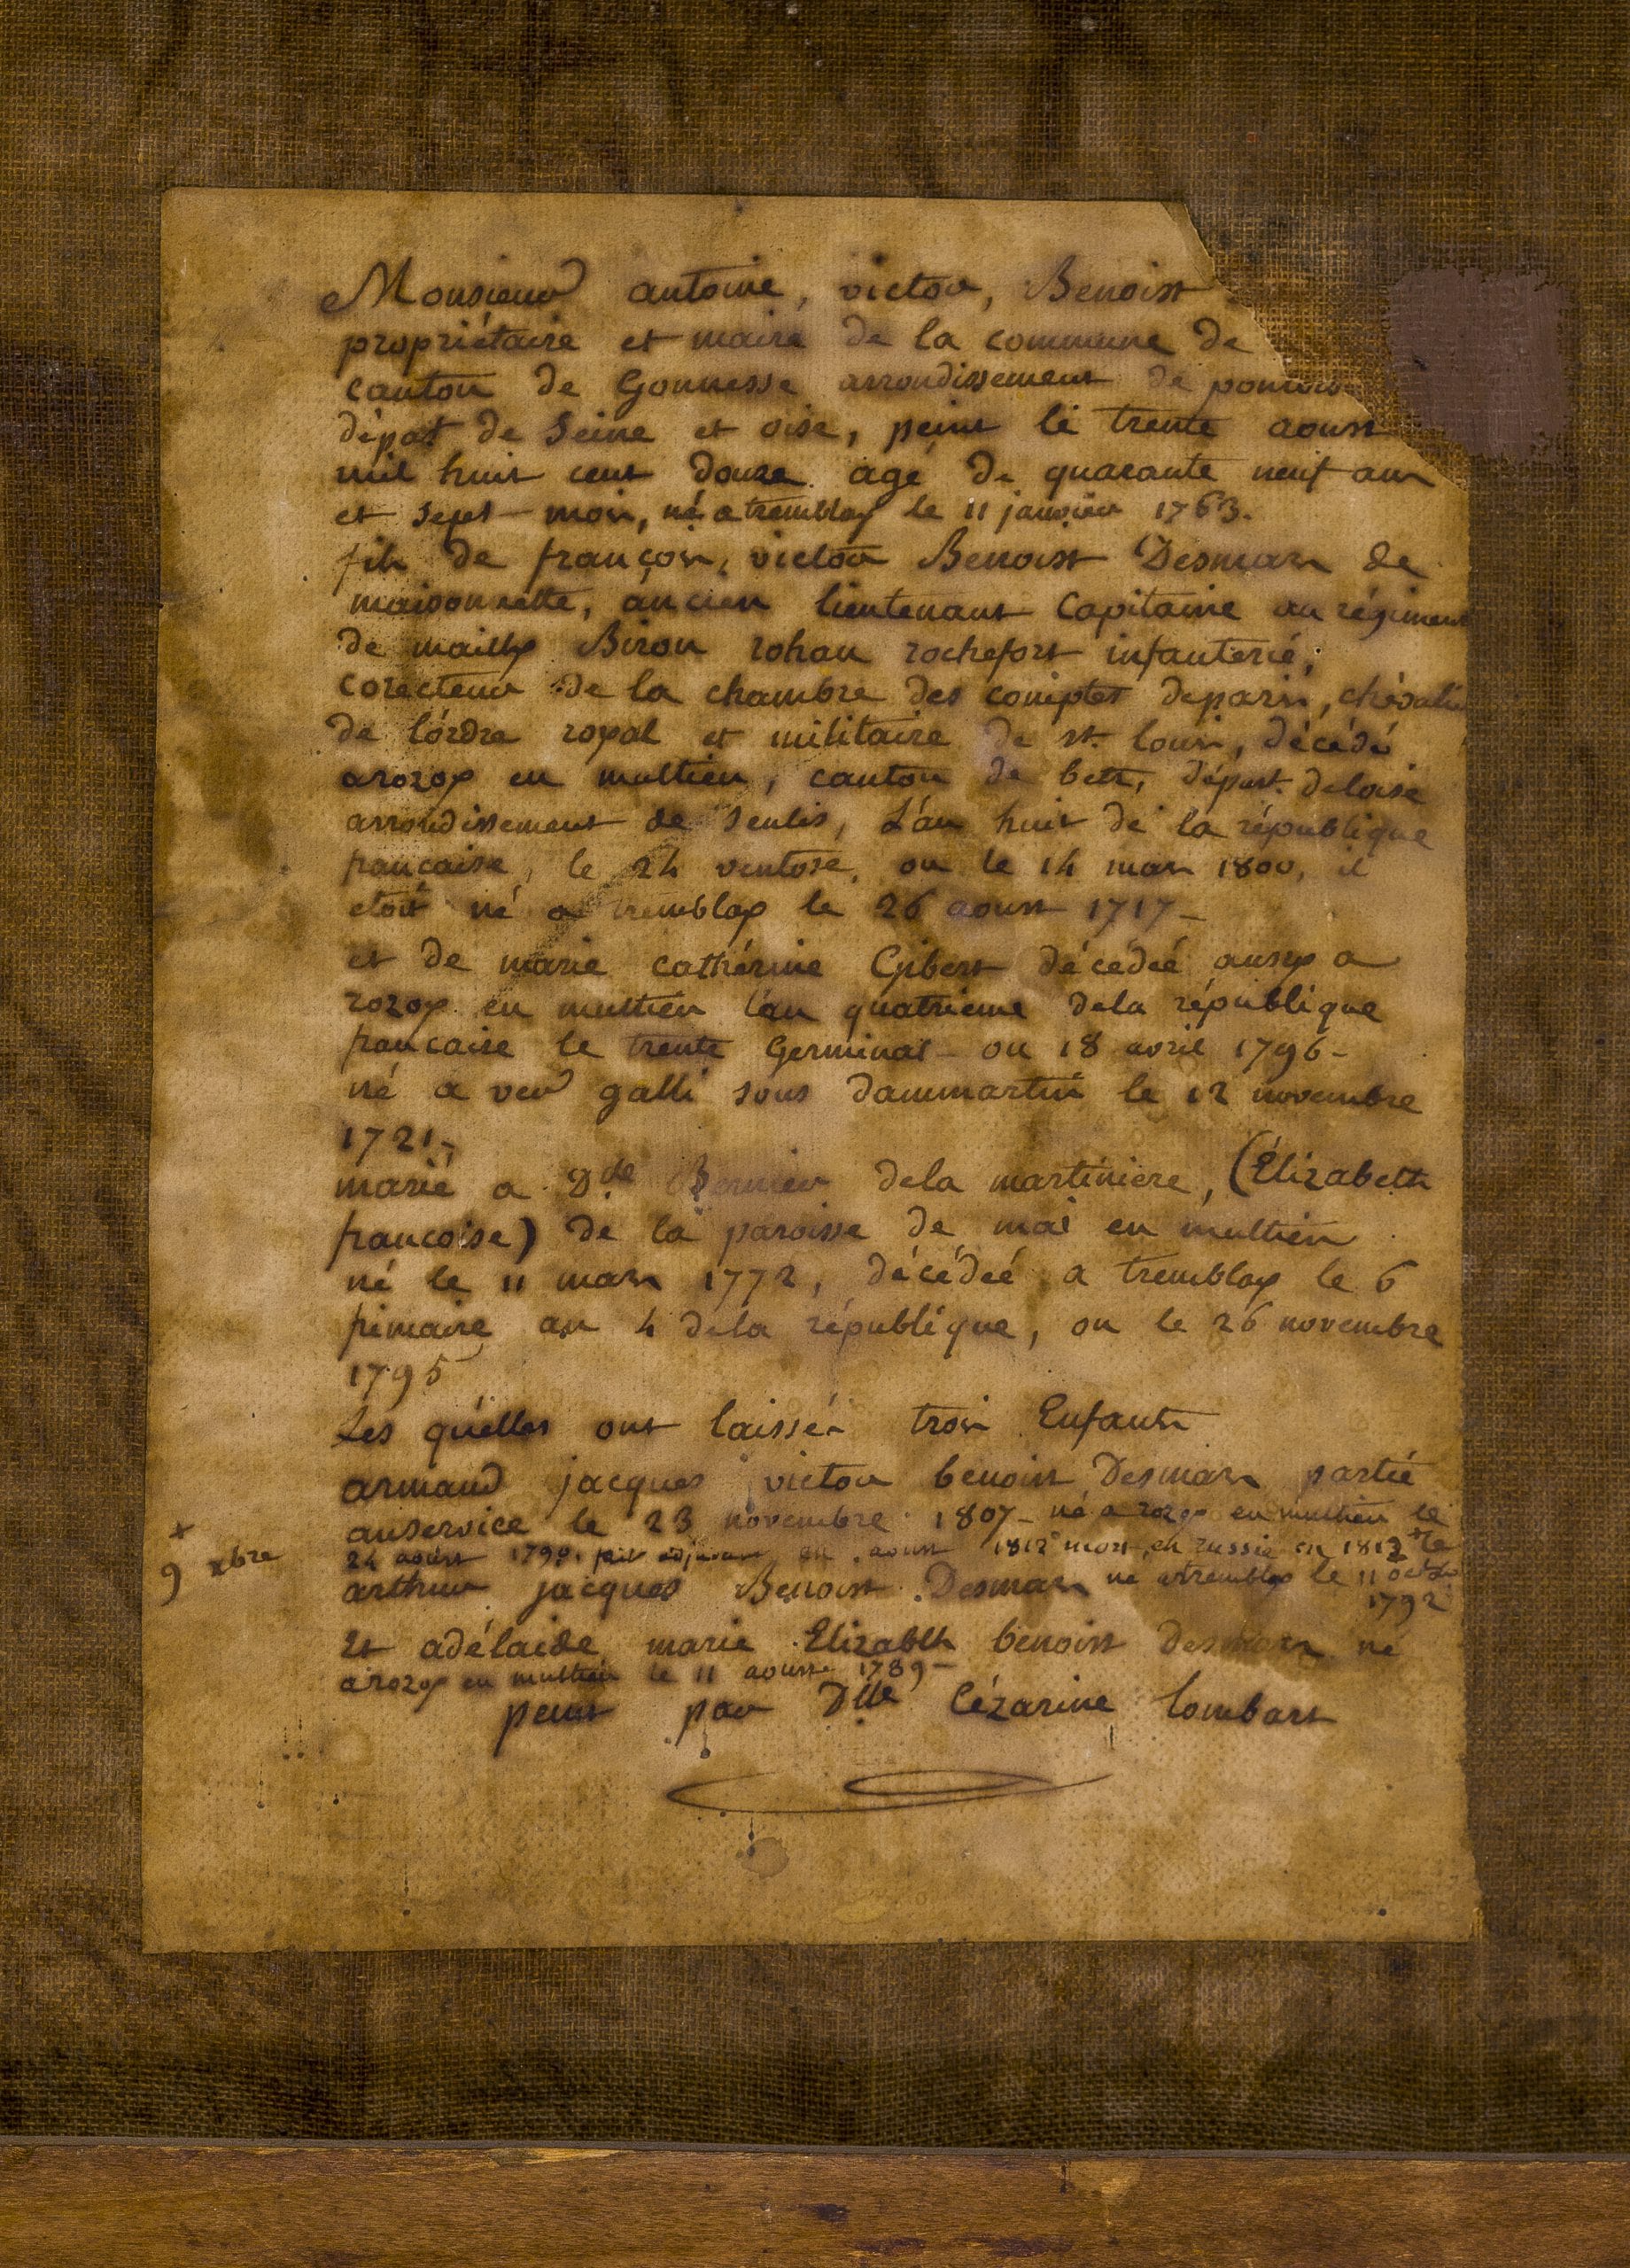 Monsieur antoine, victor, Benoist
propriétaire et maire de la commune de
canton de Gonnesse arrondissement de pontois
dépat de Seine et oise, peint le trente aoust
mil huit cent douze agé de quarante neuf ans
et sept mois, né a tremblay le 11 janvier 1763.
fils de françois, victor Benoist Desmars de
maisonnette, ancien lieutenant Capitaine au régiment
de mailly Biron rohan rochefort infanterie,
corecteur de la chambre des comptes deparis, chevalie
de l'ordre royal et militaire de st. louis, décédé
arozoy en multien, canton de betz, départ. deloise
arrondissement de Senlis, L'an huit de la république
francaise, le 24 ventose, ou le 14 mars 1800, il
etoit né a tremblay le 26 aoust 1717-
et de marie cathérine Gibert décédeé aussy a
rozoy en multien l'an quatrieme dela république
francaise le trente Germinal - ou 18 avril 1796-
né a ver galli sous dammartin le 12 novembre
1721,
marié a D.de Bernier dela martiniere, (Élizabeth
francoise) de la paroisse de mai en multien
né le 11 mars 1772, décédeé a tremblay le 6
frimaire an 4 dela république, ou le 26 novembre
1795
Les qu'elles ont laissés trois Enfants
armand jacques victor benoist Desmars partie
auservice le 23 novembre 1807- né a rozoy en multien le
24 aoust 1790. fait adjudant en aoust 1812 mort en russie en 1812 + le
+ 9 xbre
arthur jacques Benoist Desmars né atremblay le 11 octbr
1792
Et adélaide marie Elizabeth benoist desmars né
arozoy en multien le 11 aoust 1789-
peint par Dlle Cézarine lombart